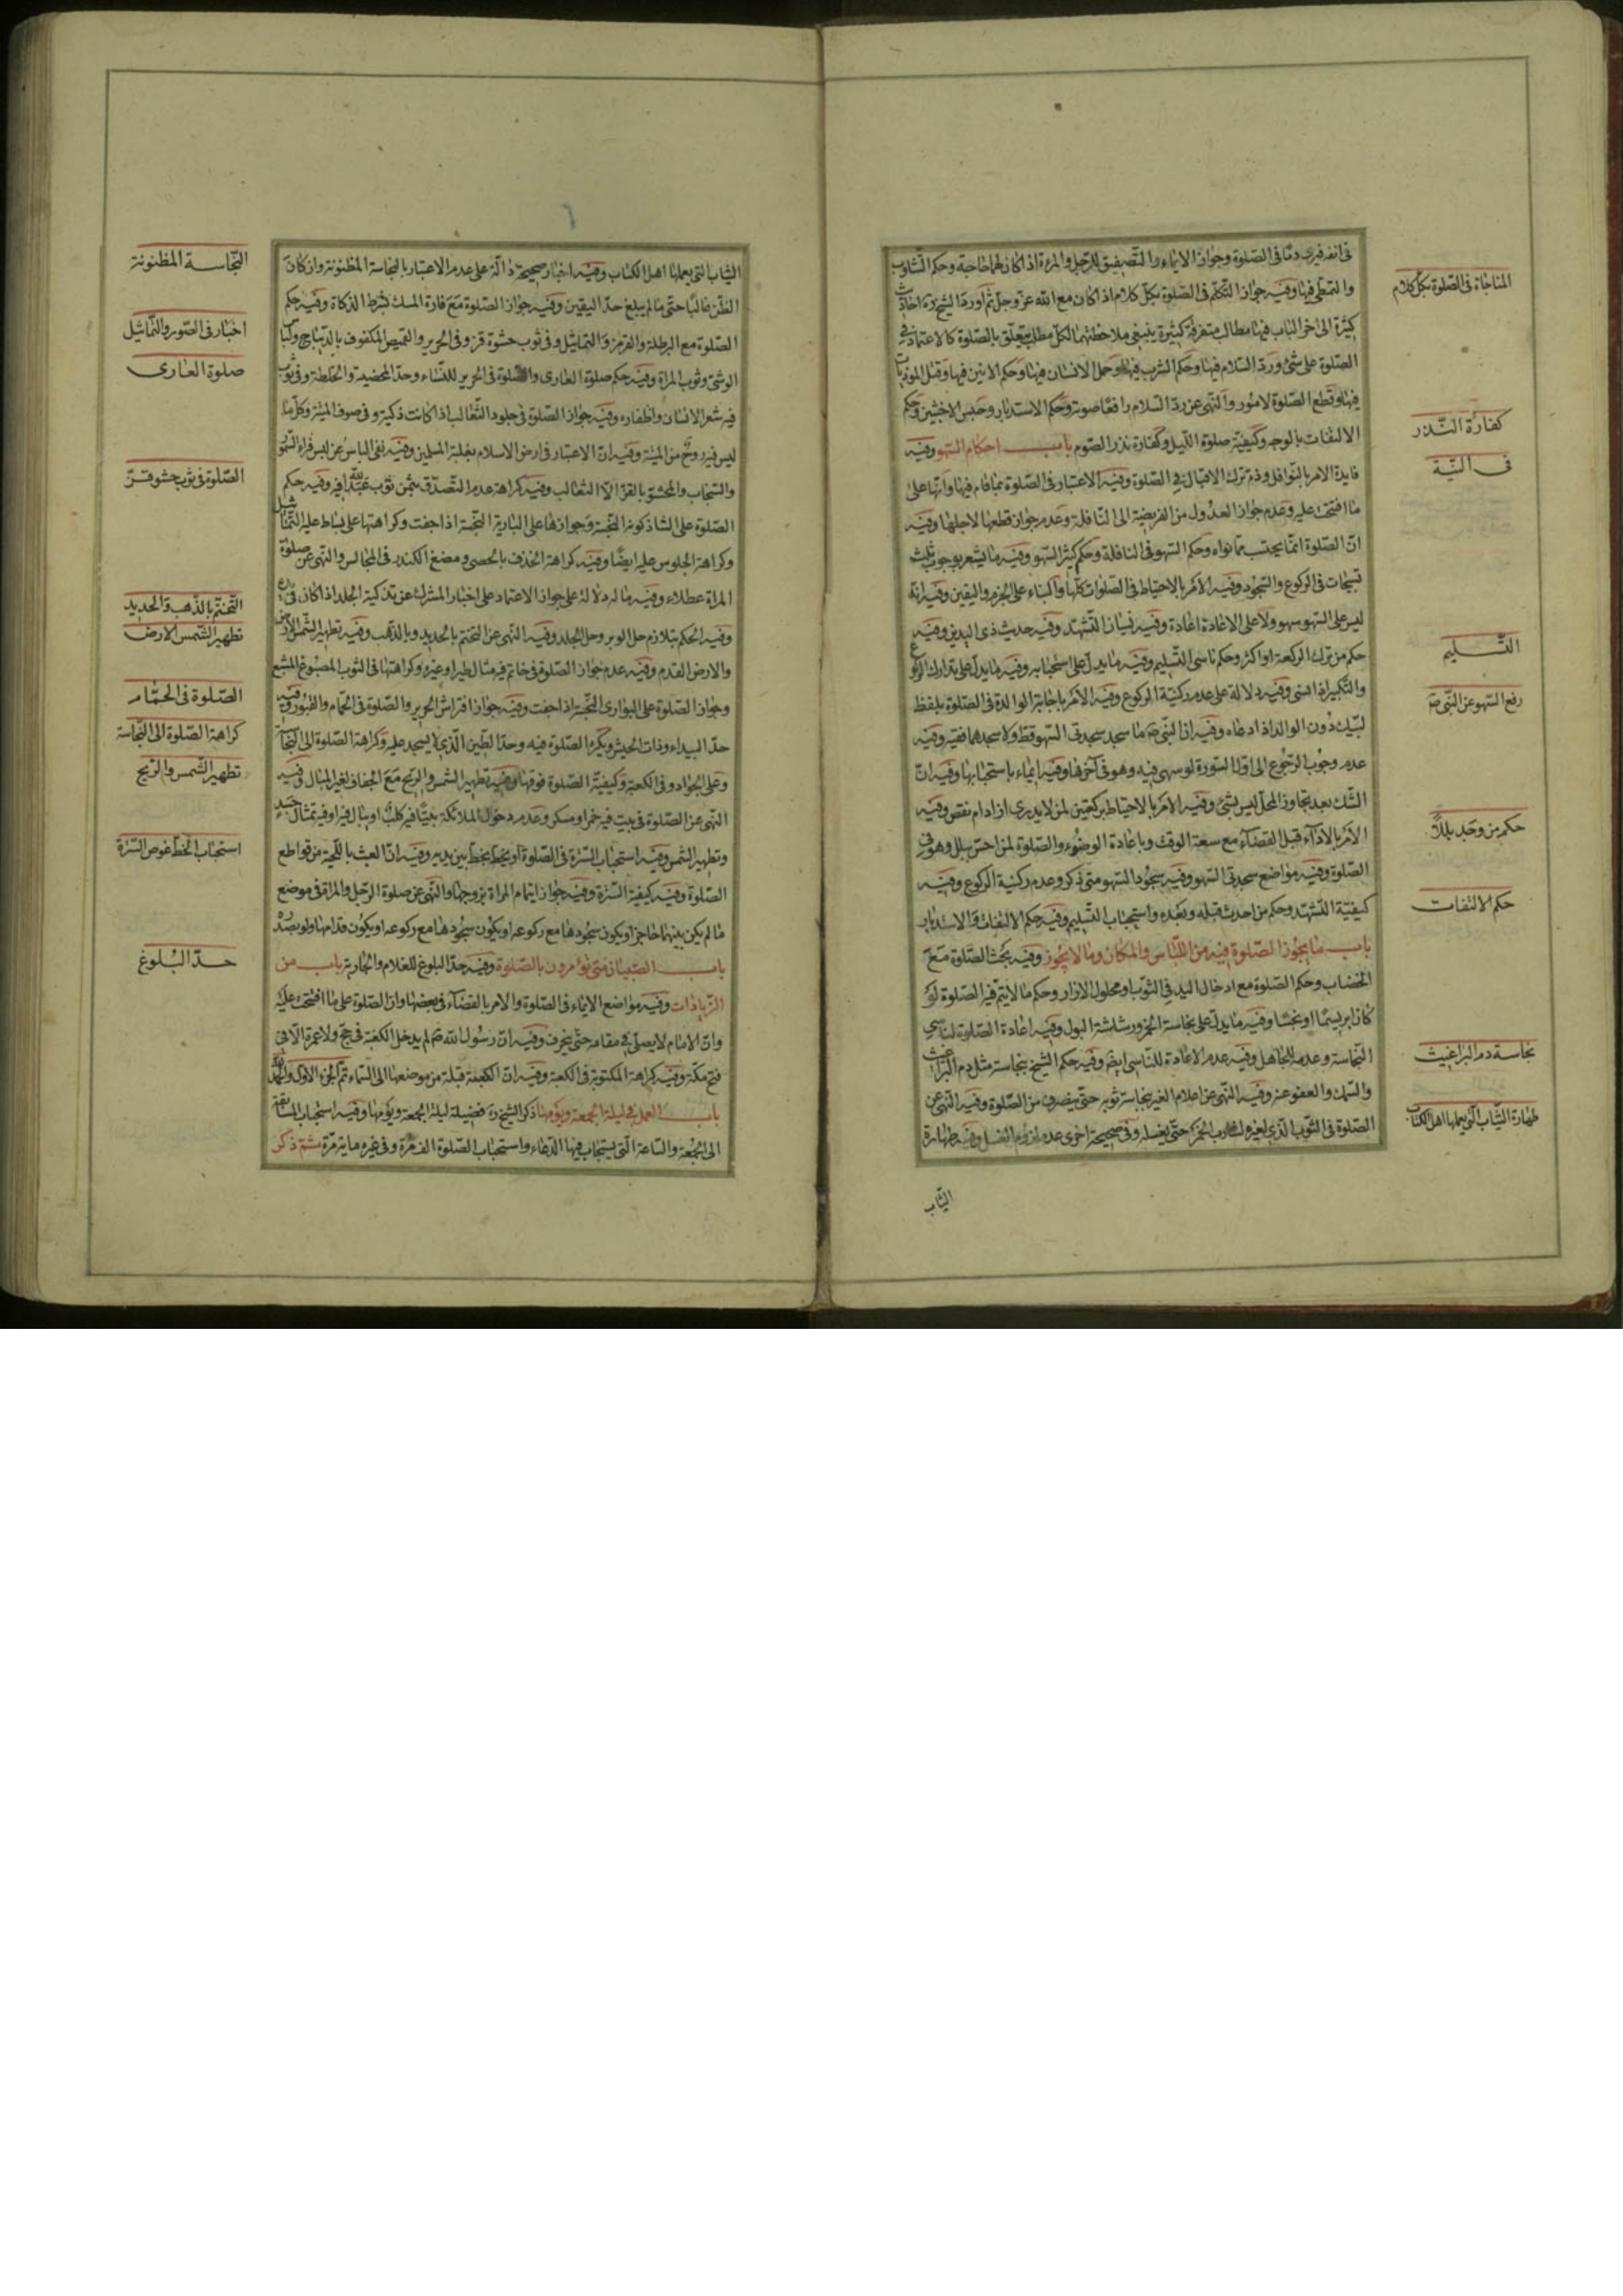 فى انفه فيرى دمًا فى الصّلوة وجواز الايماء والتّصفيق للرّجل والمرءة اذا كان لهما حاجة وحكم التّثاوب
والتمطّى فيها وفيه جواز التّكلّم فى الصّلوة بكلّ كلام اذا كان مع الله عزّ وجلّ ثم اورد الشيخ ره احاديث
كثيرة الى اخر الباب فيها مطالب متفرقة كثيرة ينبغى ملاحظتها لكلّ مطلب يتعلّق بالصّلوة كالاعتماد فى
الصّلوة على شئ وردّ السّلام فيها وحكم الشرب فيها وحمل الانسان فيها وحكم الانين فيها وقتل الموذيات
فيها وقطع الصّلوة لامور والنّهى عن ردّ السّلام رافعًا صوته وحكم الاستدبار وحبس الاخبثين وحكم
الالتفات بالوجه وكيفيّة صلوة اللّيل وكفارة نذر الصّوم باب احكام السّهو وفيه
فايدة الامر بالنّوافل وذمّ ترك الاقبال فى الصّلوة وفيه الاعتبار فى الصّلوة بما قام فيها وانّها على
ما افتتحت عليه وعدم جواز العدول من الفريضة الى النّافلة وعدم جواز قطعها لاجلها وفيه
انّ الصّلوة انّما يحتسب ممّا نواه وحكم السّهو فى النافلة وحكم كثير السّهو وفيه ما يشعر بوجوب ثلث
تسبيحات فى الركوع والسّجود وفيه الامر بالاحتياط فى الصّلوات كلّها والبناء على الجزم واليقين وفيه انّه
ليس على السّهو سهو ولا على الاعادة اعادة وفيه نسيان التّشهّد وفيه حديث ذى اليدين وفيه
حكم من ترك الركعة او اكثر وحكم ناسى التّسليم وفيه ما يدلّ على استحبابه وفيه ما يدلّ على تدارك الركوع
والتّكبير اذا نسى وفيه دلالة على عدم ركنيّة الركوع وفيه الامر باجابة الوالدة فى الصّلوة بلفظ
لبّيك دون الوالد اذا دعاه وفيه ان النّبى ص ما سجد سجدتى السّهو قطّ ولا سجدهما فقيه وفيه
عدم وجوب الرّجوع الى اوّل السّورة لو سهى فيه وهو فى آخرها وفيه ايماء باستحبابها وفيه انّ
الشّك بعد تجاوز المحلّ ليس بشئ وفيه الامر بالاحتياط بركعتين لمن لا يدرى ازاد ام نقص وفيه
الامر بالاداء قبل القضاء مع سعة الوقت وباعادة الوضوء والصّلوة لمن احسّ ببلل وهو فى
الصّلوة وفيه مواضع سجدتى السّهو وفيه سجود السّهو متى ذكر وعدم ركنية الركوع وفيه
كيفيّة التّشهّد وحكم من احدث قبله وبعده واستحباب التّسليم وفيه حكم الالتفات والاستدبار
باب ما يجوز الصّلوة فيه من اللّباس والمكان وما لا يجوز وفيه بحث الصّلوة مع
الخضاب وحكم الصّلوة مع ادخال اليد فى الثوب او محلول الازار وحكم ما لا يتمّ فيه الصّلوة لو
كان ابريسمًا او نجسًا وفيه ما يدلّ على نجاسة الخمر ورشاشة البول وفيه اعادة الصّلوة لناسى
النّجاسة وعدمه للجاهل وفيه عدم الاعادة للنّاسى ايضًا وفيه حكم الشيخ بنجاسة مثل دم البراغيث
والسّمك والعفو عنه وفيه النّهى عن اعلام الغير بنجاسة ثوبه حتّى ينصرف من الصّلوة وفيه النّهى عن
الصّلوة فى الثوب الّذى لغيره لشارب الخمر حتّى يغسله وفى صحيحة اخرى عدم لزوم الغسل وفيه طهارة
الثياب
المناجاة فى الصّلوة بكلّ كلام
كفارة النّذر
فى النيّة
التّسليم
رفع السّهو عن النّبى ص
حكم من وجد بللاً
حكم الالتفات
نجاسة دم البراغيث
طهارة الثّياب الّتى يعملها اهل الكتاب
٦
الثياب التى يعملها اهل الكتاب وفيه اخبار صحيحة دالّة على عدم الاعتبار بالنجاسة المظنونة وان كان
الظنّ غالبًا حتى ما لم يبلغ حدّ اليقين وفيه جواز الصّلوة مع فارة المسك بشرط الذكاة وفيه حكم
الصّلوة مع البرطلة والقرمز والتماثيل وفى ثوب حشوه قز وفى الحرير والقميص المكفوف بالدّيباج ولباس
الوشى وثوب المراة وفيه حكم صلوة العارى والصّلوة فى الحرير للنّساء وحدّ المحضية والخلطة وفى ثوب
فيه شعر الانسان واظفاره وفيه جواز الصّلوة فى جلود الثّعالب اذا كانت ذكية وفى صوف الميتة وكلّ ما
ليس فيه روح من الميتة وفيه انّ الاعتبار فى ارض الاسلام بغلبة المسلمين وفيه نفى الباس عن لبس فراء السّمّور
والسّنجاب والمحشوّ بالقزّ الّا الثعالب وفيه كراهة عدم التّصدّق بثمن ثوب عبد الله فيه وفيه حكم
الصّلوة على الشاذكونة النّجسة وجوازها على البارية النّجسة اذا جفت وكراهتها على بساط عليه التّماثيل
وكراهة الجلوس عليه ايضًا وفيه كراهة الخذف بالحصى ومضغ الكندر فى المجالس والنّهى عن صلوة
المراة عطلاء وفيه ما له دلالة على جواز الاعتماد على اخبار المشرك عن تذكية الجلد اذا كان فى
وفيه الحكم بتلازم حل الوبر وحل الجلد وفيه النّهى عن التختم بالحديد وبالذّهب وفيه تطهير الشّمس الارض
والارض القدم وفيه عدم جواز الصّلوة فى خاتم فيه مثال طير او غيره وكراهتها فى الثوب المصبوغ المشبع
وجواز الصّلوة على البوارى النّجسة اذا جفت وفيه جواز افتراش الحرير والصّلوة فى الحمّام والقبور وفيه
حدّ البيداء وذات الجيش ويكره الصّلوة فيه وحدّ الطّين الّذى لا يسجد عليه وكراهة الصّلوة الى النّجاسة
وعلى الجواد وفى الكعبة وكيفيّة الصّلوة فوقها وفيه تطهير الشمس والريح مع الجفاف لغير المنال فيه
النّهى عن الصّلوة فى بيت فيه خمر او مسكر وعدم دخول الملائكة بيتًا فيه كلب او يبال فيه او فيه تمثال جسد
وتطهير الشمس وفيه استحباب السّترة فى الصّلوة او يخط بخطّ بين يديه وفيه انّ العبث باللّحية من قواطع
الصّلوة وفيه كيفية السّترة وفيه جواز ايتمام المراة بزوجها والنّهى عن صلوة الرّجل والمراة فى موضع
ما لم يكن بينهما حاجز او يكون سجودها مع ركوعه او يكون سجودها مع ركوعه او يكون قدامها ولو بصدره
باب الصّبيان متى يؤمرون بالصّلوة وفيه حدّ البلوغ للغلام والجارية باب من
الزّيادات وفيه مواضع الايماء فى الصّلوة والامر بالقضاء فى بعضها وان الصّلوة على ما افتتحت عليه
وانّ الامام لا يصلّى فى مقامه حتّى ينحرف وفيه انّ رسول الله ص لم يدخل الكعبة فى حجّ ولا عمرة الّا فى
فتح مكّة وفيه كراهة المكتوبة فى الكعبة وفيه انّ الكعبة قبلة من موضعها الى السّماء تمّ الجزء الاوّل والحمد لله
باب العمل فى ليلة الجمعة ويومها ذكر الشيخ ره فضيلة ليلة الجمعة ويومها وفيه استحباب المسابقة
الى الجمعة والسّاعة الّتى يستجاب فيها الدّعاء واستحباب الصّلوة الف مرّة وفى غيره ماية مرّة ثمّ ذكر
النّجاسة المظنونة
اخبار فى الصّور والتّماثيل
صلوة العارى
الصّلوة فى ثوب حشوه قزّ
التّختّم بالذّهب والحديد
تطهير الشّمس الارض
الصّلوة فى الحمّام
كراهة الصّلوة الى النّجاسة
تطهير الشّمس والرّيح
استحباب الخطّ عوض السّترة
حدّ البلوغ